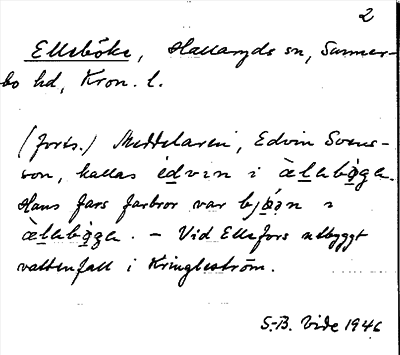 2
Ellsböke, Hallaryds sn, Sunner-
bo hd, Kron. l.
(forts.) Meddelaren, Edvin Svens-
son, kallas édvin i
Hans fars farbror var
– Vid Ellsfors utbyggt
vattenfall i Kringleström.
S.-B. Vide 1946